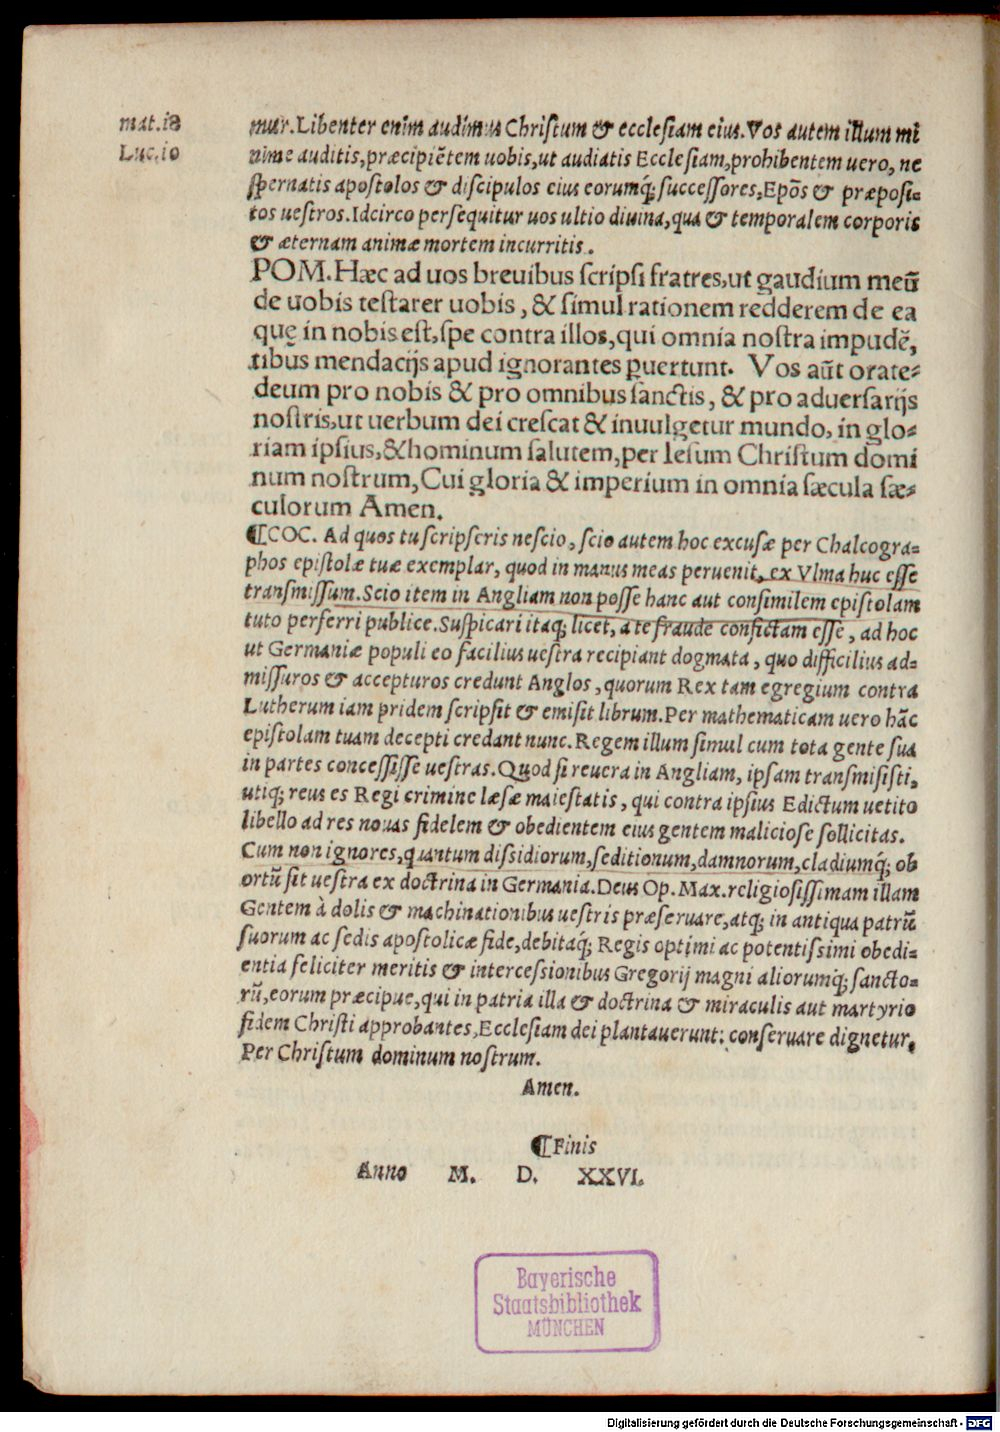 mat.18
Luc.10
mur.Libenter enim audimus Christum & ecclesiam eius.Vos autem illum mi
nime auditis,præcipiẽtem uobis,ut audiatis Ecclesiam,prohibentem uero, ne
spernatis apostolos & discipulos eius eorumq́; successores,Epõs & præposi=
tos uestros.Idcirco persequitur uos ultio diuina,qua & temporalem corporis
& æternam animæ mortem incurritis.
POM.Hæc ad uos breuibus scripsi fratres,ut gaudium meũ
de uobis testarer uobis, & simul rationem redderem de ea
quę in nobis est,spe contra illos,qui omnia nostra impudẽ,
tibus mendacijs apud ignorantes puertunt. Vos aũt orate=
deum pro nobis & pro omnibus sanctis, & pro aduersarijs
nostris,ut uerbum dei crescat & inuulgetur mundo, in glo=
riam ipsius,& hominum salutem,per Iesum Christum domi
num nostrum,Cui gloria & imperium in omnia sæcula sæ=
culorum Amen.
¶COC. Ad quos tu scripseris nescio, scio autem hoc excusæ per Chalcogra=
phos epistolæ tuæ exemplar, quod in manus meas peruenit, ex Vlma huc esse
transmissum.Scio item in Angliam non posse hanc aut consimilem epistolam
tuto perferri publice.Suspicari itaq; licet, a te fraude confictam esse, ad hoc
ut Germaniæ populi eo facilius uestra recipiant dogmata, quo difficilius ad=
missuros & accepturos credunt Anglos, quorum Rex tam egregium contra
Lutherum iam pridem scripsit & emisit librum.Per mathematicam uero hãc
epistolam tuam decepti credant nunc.Regem illum simul cum tota gente sua
in partes concessisse uestras.Quod si reuera in Angliam, ipsam transmisisti,
utiq; reus es Regi crimine læsæ maiestatis, qui contra ipsius Edictum uetito
libello ad res nouas fidelem & obedientem eius gentem maliciose sollicitas.
Cum non ignores,quantum dissidiorum,seditionum,damnorum,cladiumq́; ob
ortũ sit uestra ex doctrina in Germania.Deus Op. Max.religiosissimam illam
Gentem à dolis & machinationibus uestris præseruare,atq; in antiqua patrũ
suorum ac sedis apostolicæ fide,debitaq́; Regis optimi ac potentissimi obedi=
entia feliciter meritis & intercessionibus Gregorij magni aliorumq́; sancto=
rũ,eorum præcipue,qui in patria illa & doctrina & miraculis aut martyrio
fidem Christi approbantes,Ecclesiam dei plantauerunt: conseruare dignetur,
Per Christum dominum nostrum.
Amen.
¶Finis
Anno M. D. XXVI.
Bayerische
Staatsbibliothek
MÜNCHEN
Digitalisierung gefördert durch die Deutsche Forschungsgemeinschaft - DFG